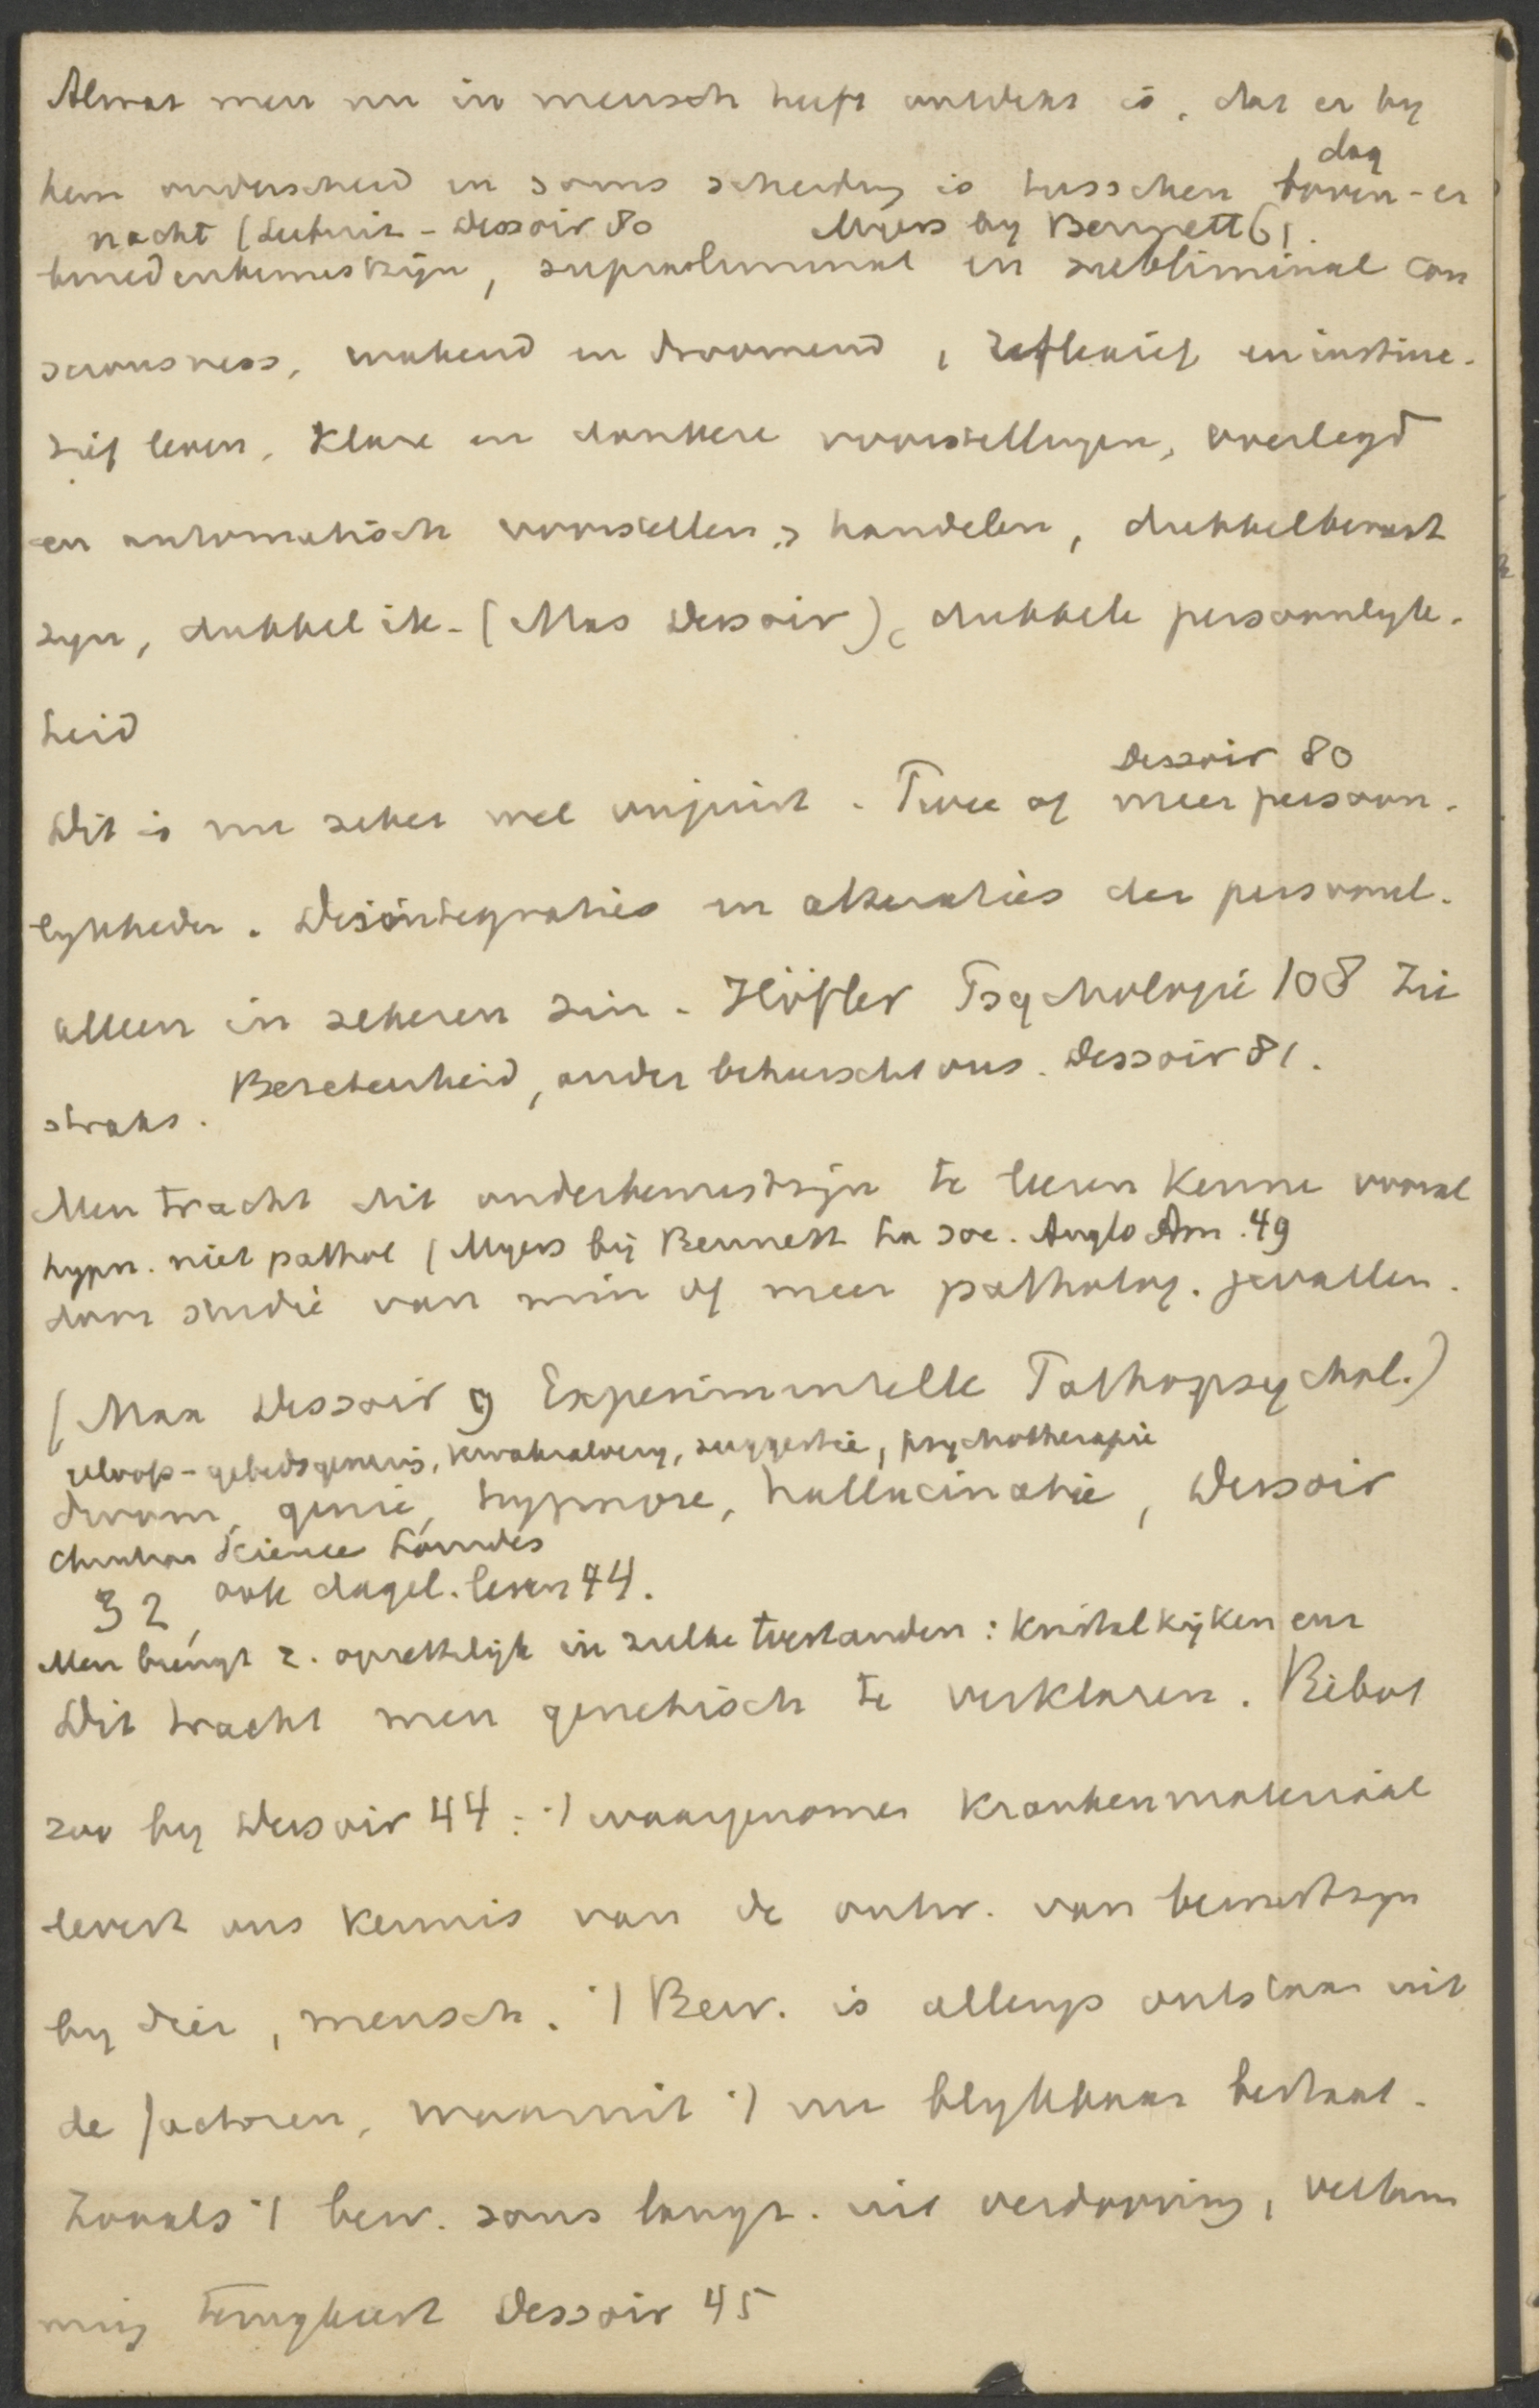 Alwat men nu in mensch heeft ontdekt is, dat er by
dag
hem onderscheid en soms scheiding is tusschen boven- en
nacht (Leibniz - Dessoir 80 Myers by Bennett 61.
benedenbewustzijn, supraliminal en subliminal con
sciousness, wakend en droomend, reflexief en instinc-
tief leven, klare en donkere voorstellingen, overlegd
en automatisch voorstellen, handelen, dubbelbewust
zyn, dubbel ik - (Max Dessoir), dubbele persoonlyk-
heid
Dessoir 80
Dit is nu zeker wel onjuist. Twee of meer persoon-
lykheden. Desintegraties en alteraties der persoonl.
alleen in zekeren zin. Höfler Psychologie 108 Zie
straks. Bezetenheid, ander beheerscht ons. Dessoir 81.
Men tracht dit onderbewustzijn te leeren kennen vooral
hypn. niet pathol (Myers bij Bennett La soc. Anglo Am. 49
door studie van min of meer patholog. gevallen.
(Max Dessoir 9 Experimentelle Pathopsychol.)
geloofs-gebedsgenezing, kwakzalvery, suggestie, psychotherapie
droom, genie, hypnose, hallucinatie, Dessoir
Christian Science Lourdes
32, ook dagel. leven 44.
Men brengt z. opzettelijk in zulke toestanden: kristalkijken enz
Dit tracht men genetisch te verklaren. Ribot
zoo by Dessoir 44: 't waargenomen Krankenmaterial
levert ons kennis van de ontw. van bewustzyn
by dier, mensch. 't Bew. is allengs ontstaan uit
de factoren, waaruit 't nu blykbaar bestaat.
Zooals 't bew. soms langz. uit verdooving,
terugkeert Dessoir 45